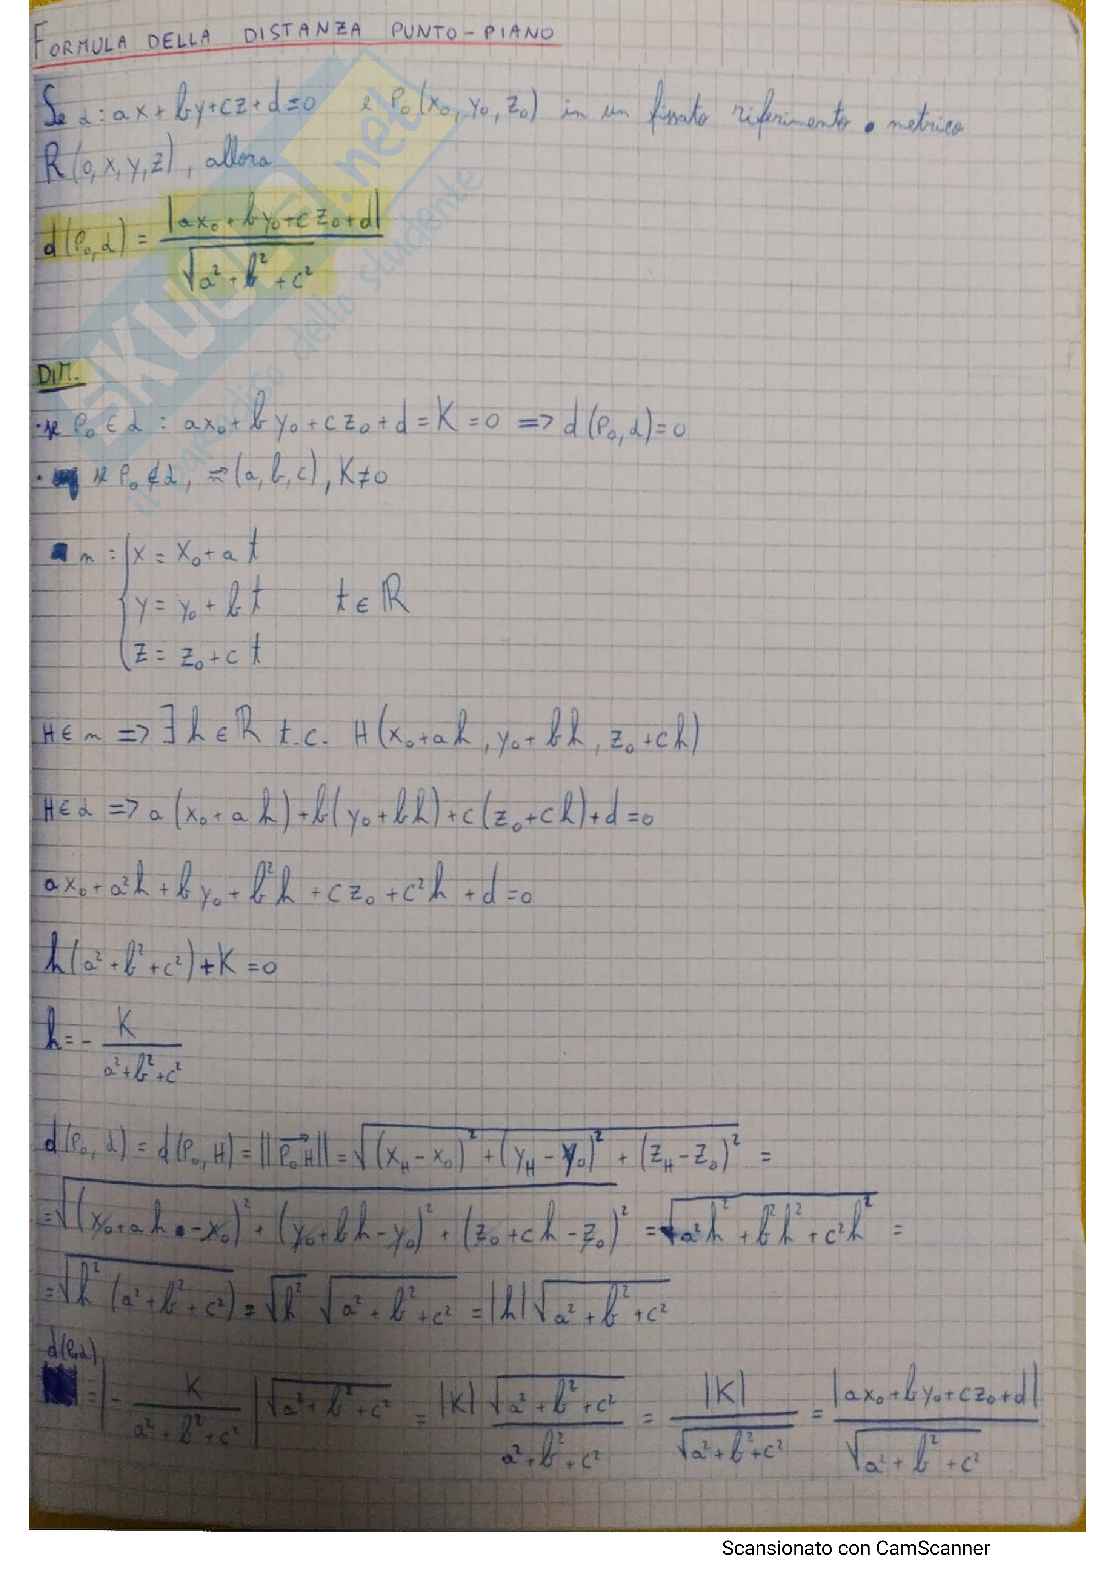 FORMULA DELLA DISTANZA PUNTO-PIANO
Se α: ax + by + cz + d = 0 e P₀(x₀, y₀, z₀) in un fissato riferimento metrico
R(O, x, y, z), allora
d(P₀, α) = |ax₀ + by₀ + cz₀ + d| / √(a² + b² + c²)
DIM.
· se P₀ ∈ α : ax₀ + by₀ + cz₀ + d = K = 0 => d(P₀, α) = 0
· se P₀ ∉ α, (a, b, c), K ≠ 0
n : { x = x₀ + at
y = y₀ + bt t ∈ ℝ
z = z₀ + ct
H ∈ n => ∃ h ∈ ℝ t.c. H(x₀ + ah, y₀ + bh, z₀ + ch)
H ∈ α => a(x₀ + ah) + b(y₀ + bh) + c(z₀ + ch) + d = 0
ax₀ + a²h + by₀ + b²h + cz₀ + c²h + d = 0
h(a² + b² + c²) + K = 0
h = - K / (a² + b² + c²)
d(P₀, α) = d(P₀, H) = ||P₀H|| = √((x_H - x₀)² + (y_H - y₀)² + (z_H - z₀)²) =
= √((x₀ + ah - x₀)² + (y₀ + bh - y₀)² + (z₀ + ch - z₀)²) = √(a²h² + b²h² + c²h²) =
= √(h²(a² + b² + c²)) = √h² √(a² + b² + c²) = |h| √(a² + b² + c²)
d(P₀, α)
= |- K / (a² + b² + c²)| √(a² + b² + c²) = |K| √(a² + b² + c²) / (a² + b² + c²) = |K| / √(a² + b² + c²) = |ax₀ + by₀ + cz₀ + d| / √(a² + b² + c²)
SKUOLA.net
dello studente
Scansionato con CamScanner